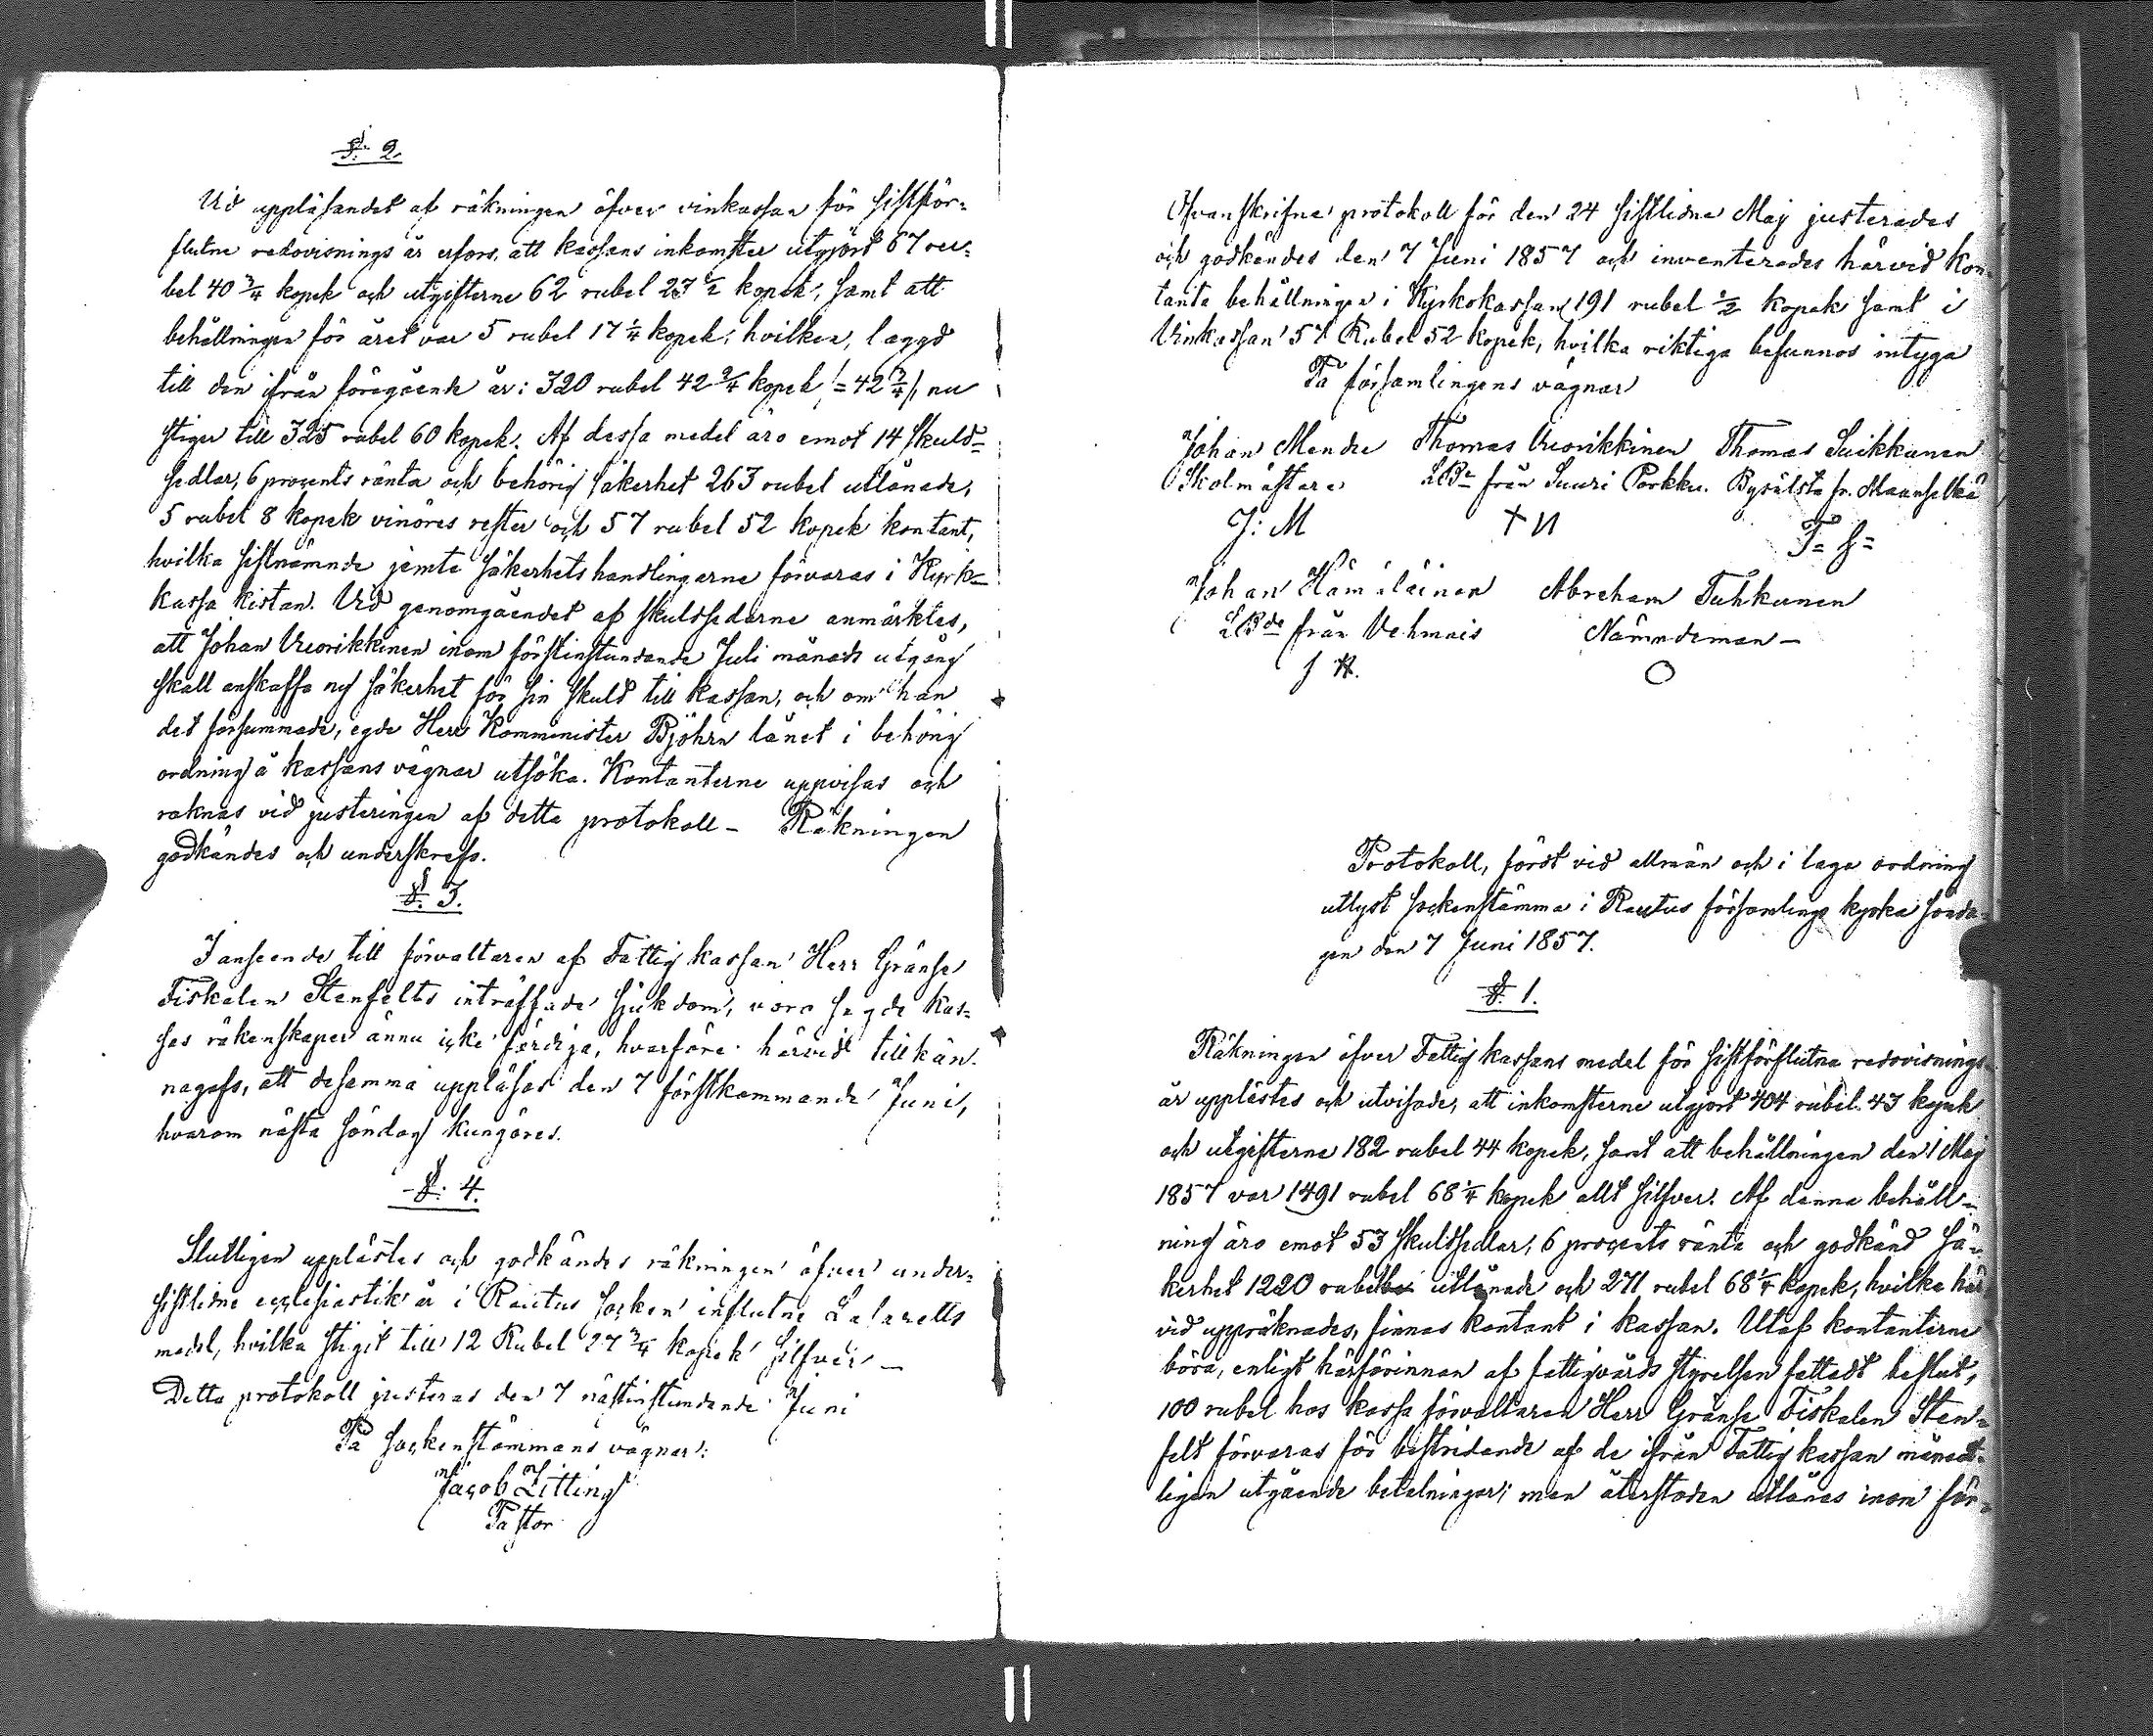 §. 2.
Vid uppläsandet af räkningen öfver vinkassan för sistför-
flutne redovisnings år erfors, att kassans inkomster utgjort 67 ru-
bel 40 3/4 kopek och utgifterne 62 rubel 23 1/2 kopek, samt att
behållningen för året var 5 rubel 17 1/4 kopek, hvilken, laggd
till den ifrån föregående år: 320 rubel 42 2/4 kopek /= 42 3/4/, nu
stiger till 325 rubel 60 kopek. Af dessa medel äro emot 14 skuld-
sedlar, 6 procents ränta och behörig säkerhet 263 rubel utlånade,
5 rubel 8 kopek vinöres rester och 57 rubel 52 kopek kontant,
hvilka sistnämnde jemte säkerhetshandlingarne förvaras i Kyrk-
kassa kistan. Vid genomgåendet af skuldsedlarne anmärktes,
att Johan Vuorikkinen inom förstinstundande Juli månads utgång
skall anskaffa ny säkerhet för sin skuld till kassan, och om han
det försummade, egde Herr Komminister Björhn lånet i behörig
ordning å kassans vägnar utsöka. Kontanterne uppvisas och
räknas vid justeringen af detta protokoll - Räkningen
godkändes och underskrefs.
§. 3.
I anseende till förvaltaren af Fattig kassan Herr Gränse
Fiskalen Stenfelts inträffade sjukdom, voro sagde kas-
sas räkenskaper ännu icke färdiga, hvarföre härvid tillkän-
nagafs, att desamma uppläsas den 7 förstkommande Juni,
hvarom nästa söndag kungöres.
§. 4.
Slutligen upplästes och godkändes räkningen öfver under-
sistlidne ecclesiastik år i Rautus socken influtne Lazaretts
medel, hvilka stigit till 12 Rubel 27 3/4 kopek silfver -
Detta protokoll justeras den 7 nästinstundande Juni
På sockenstämmans vägnar:
Jacob Zitting
Pastor
Ofvanskrifne protokoll för den 24 sistlidne Maj justerades
och godkändes den 7 Juni 1857 och inventerades härvid Kon-
tanta behållningen i Kyrkokassan 191 rubel 1/2 kopek samt i
Vinkassan 57 Rubel 52 kopek, hvilka riktiga befunnos intyga
På församlingens vägnar
Johan Mandre Thomas Vuorikkinen Thomas Suikkanen
Skolmästare LBde från Suuri Porkku. Byälste fr. Maanselkä
J: M + U T= S=
Johan Hämäläinen Abraham Tuhkunen
LBde från Vehmais Nämndeman -
J H. O
Protokoll, fördt vid allmän och i laga ordning
utlyst sockenstämma i Rautus församlings kyrka sönda-
gen den 7 Juni 1857.
§. 1.
Räkningen öfver Fattig kassans medel för sistförflutna redovisnings-
år upplästes och utvisade, att inkomsterne utgjort 404 rubel 43 kopek
och utgifterne 182 rubel 44 kopek, samt att behållningen den 1 Maj
1857 var 1491 rubel 68 1/4 kopek allt silfver. Af denna behåll-
ning äro emot 53 skuldsedlar, 6 procents ränta och godkänd sä-
kerhet 1220 rubel utlånade och 271 rubel 68 1/4 kopek, hvilka här
vid uppräknades, finnas kontant i kassan. Utaf kontanterne
böra, enligt härförinnan af fattigvårds styrelsen fattadt beslut,
100 rubel hos kassa förvaltaren Herr Gränse Fiskalen Sten-
felt förvaras för bestridande af de ifrån Fattig kassan månadt-
ligen utgående betalningar; men återstoden utlånas inom för-